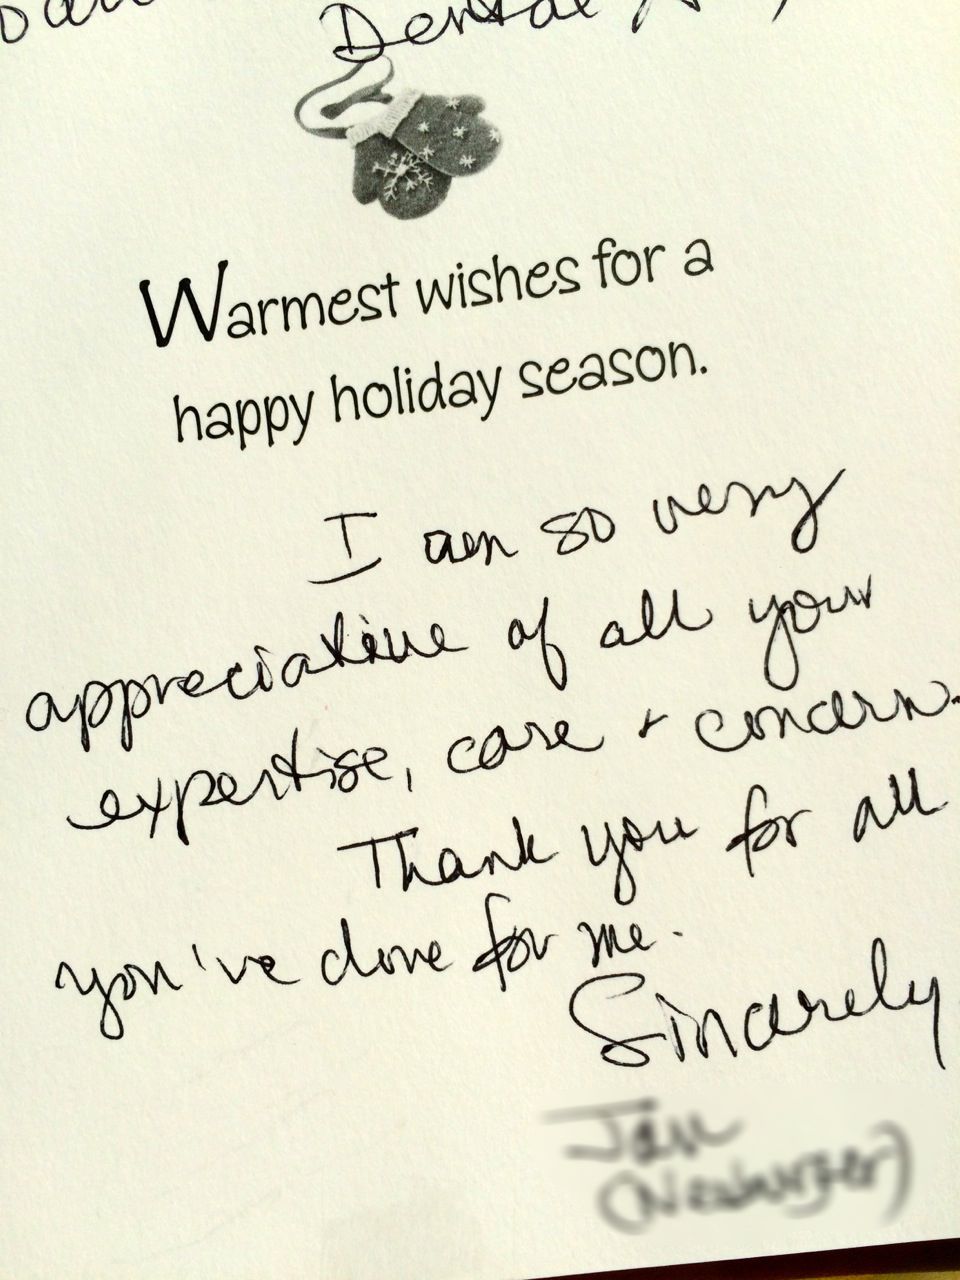 Dental
Warmest wishes for a
happy holiday season.
I am so very
appreciative of all your
expertise, care + concern.
Thank you for all
you've done for me.
Sincerely